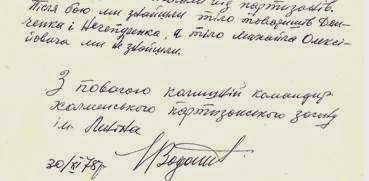 Після бою ми знайшли тіло товаришів Дем-
ченка і Нечепуренка, а тіло Михайла Олексі-
йовича ми не знайшли.
З повагою колишній командир
Холменського партизанського загону
ім. Леніна
30/XI 78р.